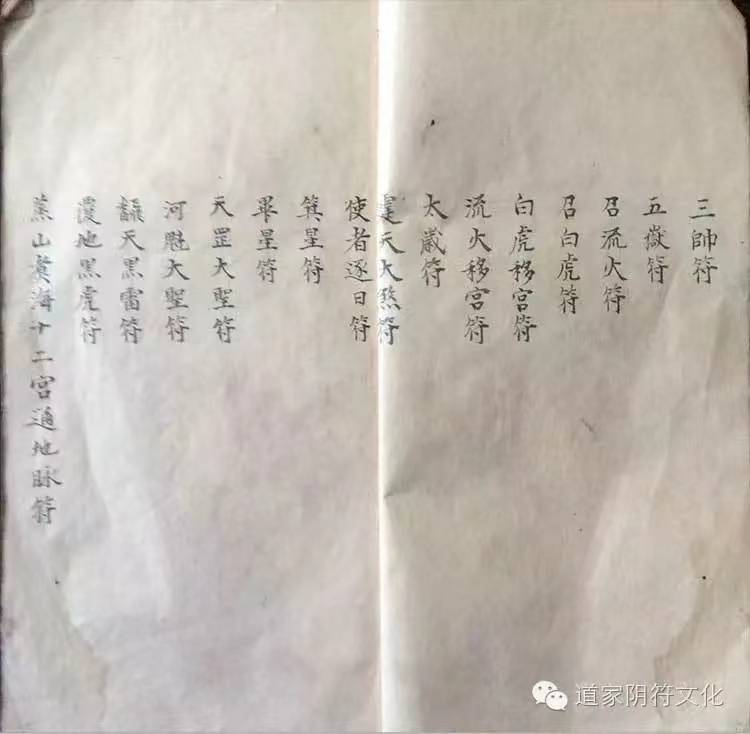 三帥符
五嶽符
召流火符
召白虎符
白虎移宮符
流火移宮符
太歲符
天大煞符
使者逐日符
箕星符
畢星符
天罡大聖符
河魁大聖符
天黑雷符
覆地黑虎符
山煑海十二宮通地脉符
道家阴符文化